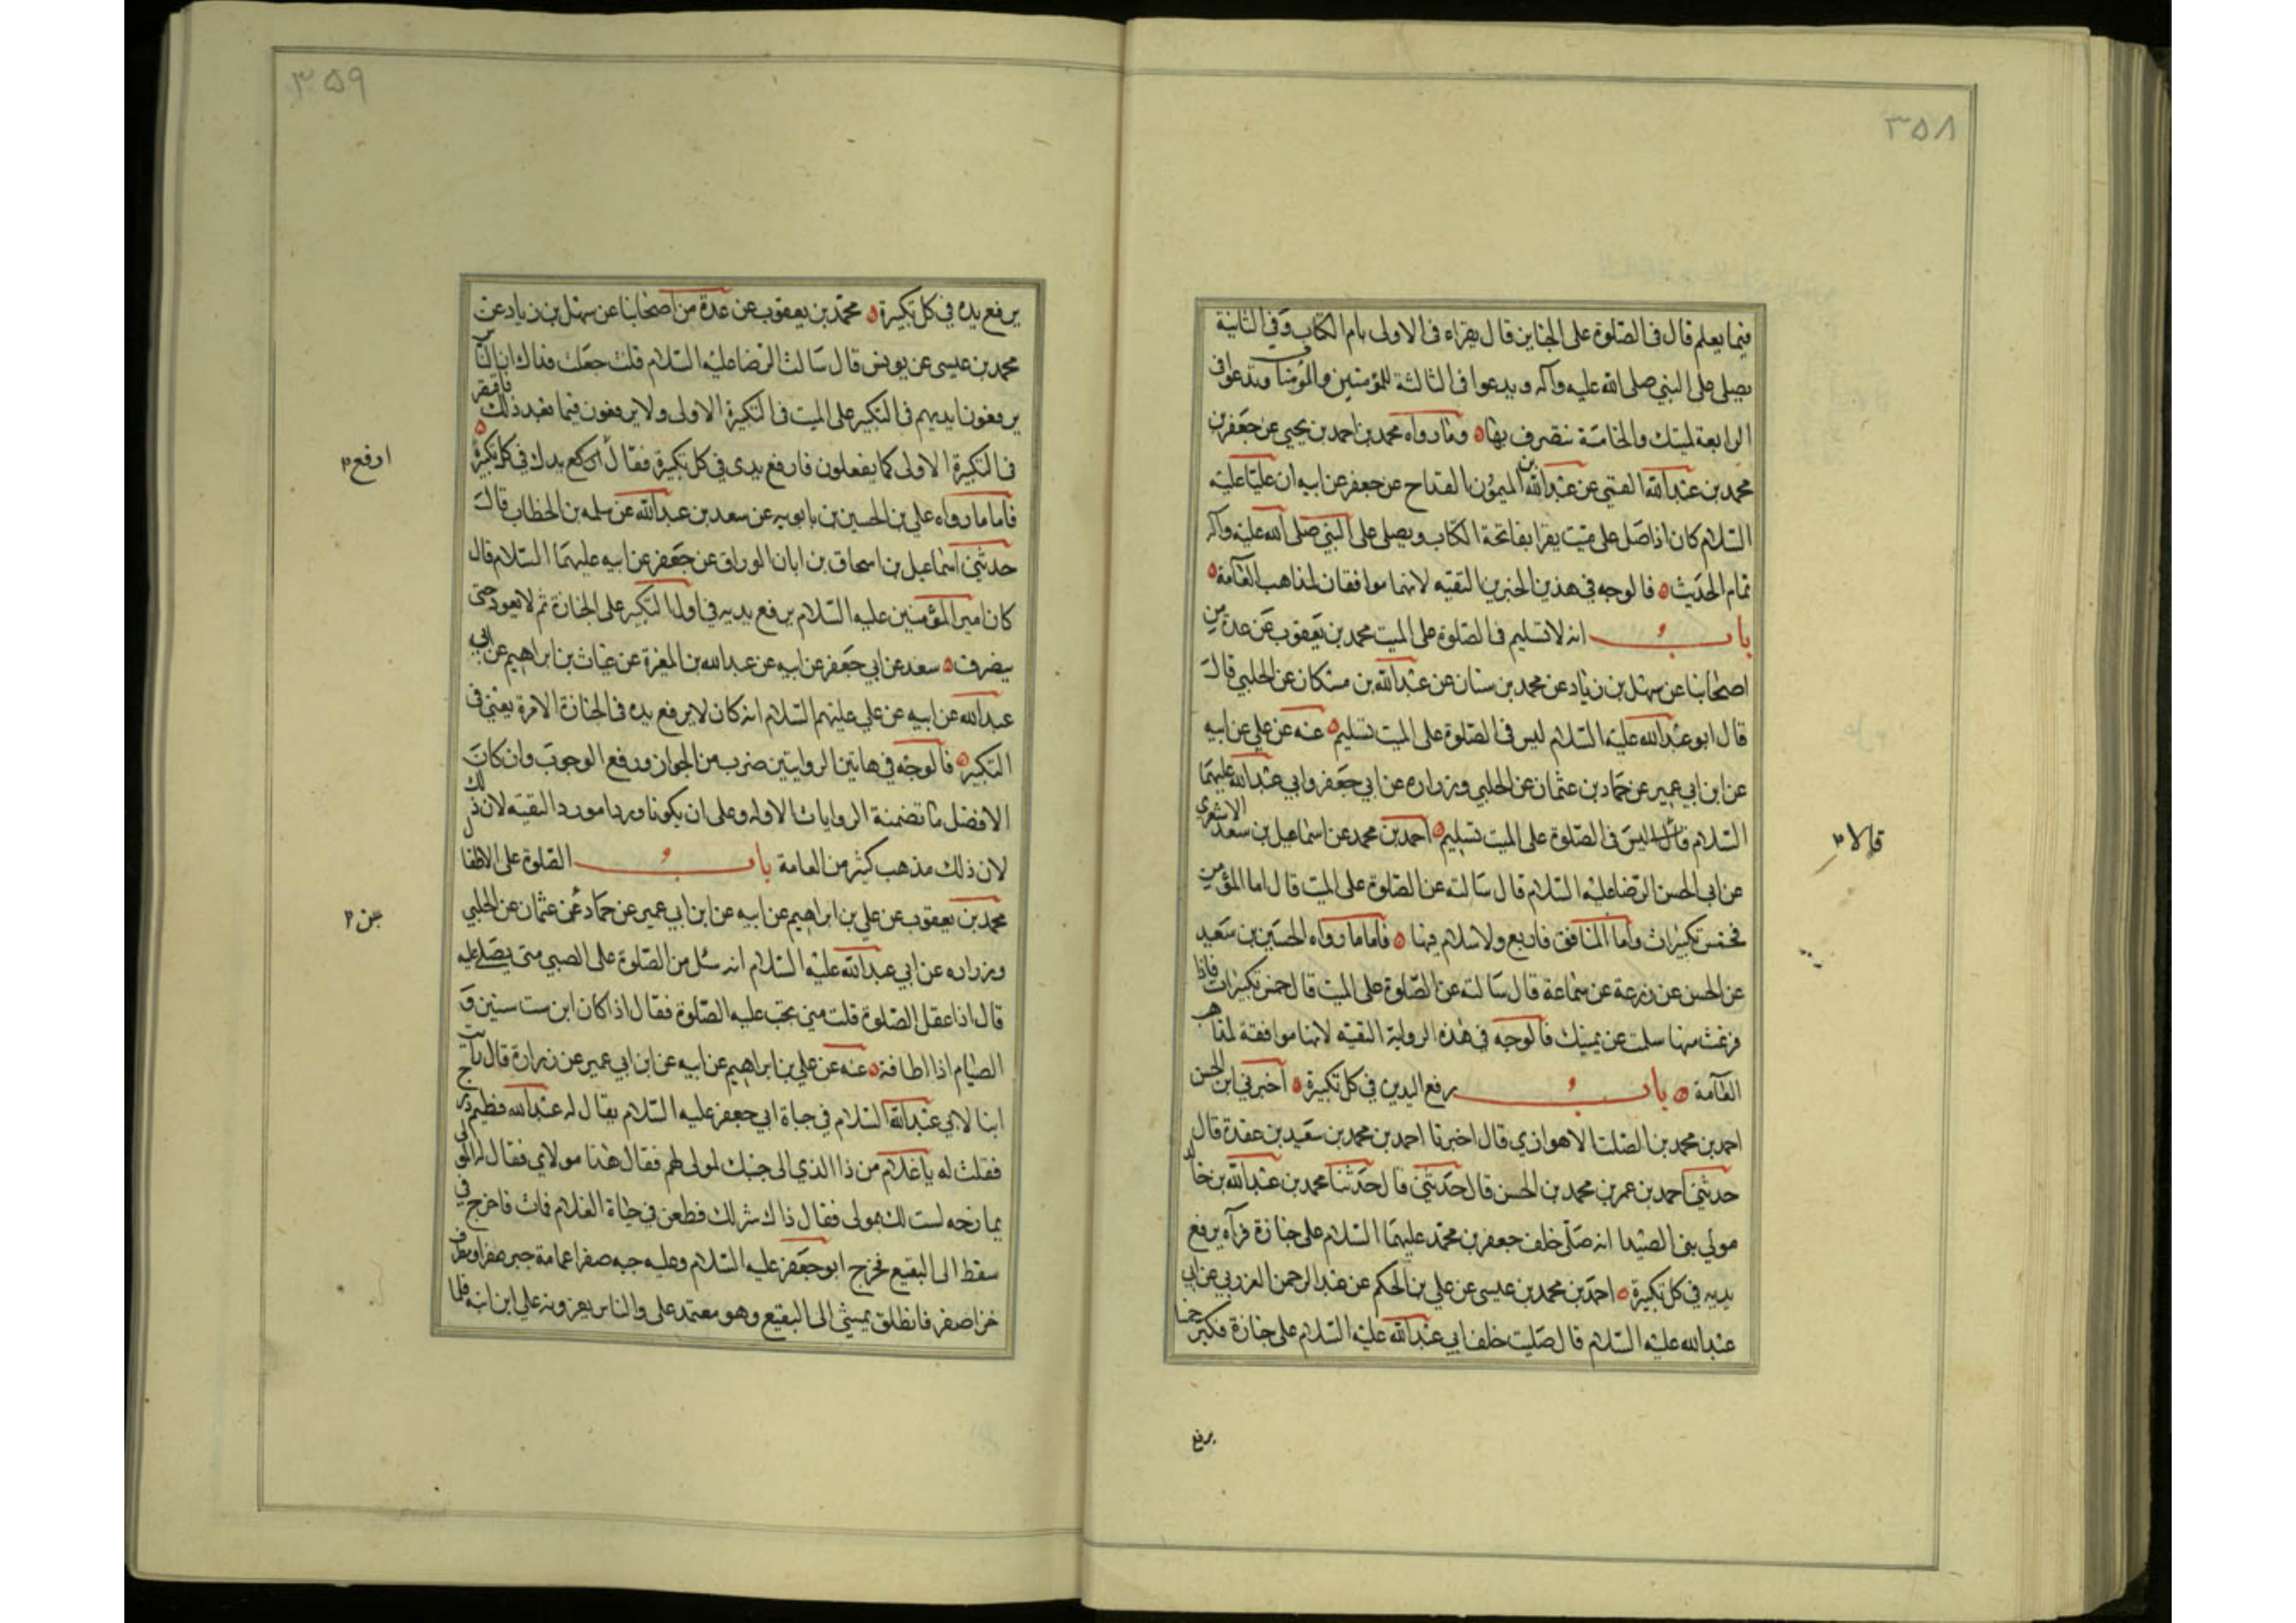 ۳۵۸
فيما يعلم قال فى الصلوة على الجنايز قال يقراء فى الاولى بام الكتاب وفي الثانية
يصلى على النبي صلى الله عليه وآله ويدعوا فى الثالثة للمؤمنين والمؤمنات ويدعوا فى
الرابعة لميتك والخامسة ينصرف بها ومارواه محمد بن احمد بن يحيى عن جعفر بن
محمد بن عبدالله القمي عن عبدالله بن الميمون القداح عن جعفر عن ابيه ان عليا عليه
السلام كان اذا صل على ميت يقرا بفاتحة الكتاب ويصلى على النبي صلى الله عليه وآله
تمام الحديث فالوجه في هذين الخبرين التقيه لانهما موافقان لمذاهب العامة
باب انه لا تسليم فى الصلوة على الميت محمد بن يعقوب عن عدة من
اصحابنا عن سهل بن زياد عن محمد بن سنان عن عبدالله بن مسكان عن الحلبي قال
قال ابو عبدالله عليه السلام ليس فى الصلوة على الميت تسليم عنه عن علي عن ابيه
عن ابن ابي عمير عن حماد بن عثمان عن الحلبي وزراره عن ابي جعفر وابي عبدالله عليهما
السلام قال ليس فى الصلوة على الميت تسليم احمد بن محمد عن اسماعيل بن سعد الاشعري
قالا
عن ابى الحسن الرضا عليه السلام قال سالته عن الصلوة على الميت قال اما المؤمن
فخمس تكبيرات واما المنافق فاربع ولا سلام فيها فاما مارواه الحسين بن سعيد
عن الحسن عن زرعة عن سماعة قال سالته عن الصلوة على الميت قال خمس تكبيرات فاذا
فرغت منها سلمت عن يمينك فالوجه في هذه الرواية التقيه لانها موافقة لمذاهب
العامة باب رفع اليدين في كل تكبيرة اخبرني ابن الحسن
احمد بن محمد بن الصلت الاهوازي قال اخبرنا احمد بن محمد بن سعيد بن عقدة قال
حدثني احمد بن عمر بن محمد بن الحسن قال حدثني قال حدثنا محمد بن عبدالله بن خالد
مولي بنى الصيدا انه صلى خلف جعفر بن محمد عليهما السلام على جنازة فرآه يرفع
يديه في كل تكبيرة احمد بن محمد بن عيسى عن علي بن الحكم عن عبد الرحمن العزرمي عن ابي
عبدالله عليه السلام قال صليت خلف ابي عبدالله عليه السلام على جنازة فكبر خمسا
يرفع
۳۵۹
يرفع يده في كل تكبيرة محمد بن يعقوب عن عدة من اصحابنا عن سهل بن زياد عن
محمد بن عيسى عن يونس قال سالت الرضا عليه السلام قلت جعلت فداك ان الناس
يرفعون ايديهم فى التكبير على الميت فى التكبيرة الاولى ولا يرفعون فيما بعد ذلك فاقتصر
فى التكبيرة الاولى كما يفعلون فارفع يدى في كل تكبيرة فقال اركع يدك في كل تكبيرة
ارفع
فاما مارواه علي بن الحسين بن بابويه عن سعد بن عبدالله عن سلمه بن الخطاب قال
حدثني اسماعيل بن اسحاق بن ابان الوراق عن جعفر عن ابيه عليهما السلام قال
كان امير المؤمنين عليه السلام يرفع يديه في اول التكبير على الجنازة ثم لا يعود حتى
ينصرف سعد عن ابي جعفر عن ابيه عن عبدالله بن المغيرة عن غياث بن ابراهيم عن ابي
عبدالله عن ابيه عن علي عليهم السلام انه كان لا يرفع يده فى الجنازة الا مرة يعني فى
التكبير فالوجه في هاتين الروايتين ضرب من الجواز ورفع الوجوب وان كان
الافضل ما تضمنة الروايات الاوله وعلى ان يكونا وردا مورد التقيه لان ذلك
لان ذلك مذهب كثير من العامة باب الصلوة على الاطفال
محمد بن يعقوب عن علي بن ابراهيم عن ابيه عن ابن ابي عمير عن حماد عن عثمان عن الحلبي
بن
وزراره عن ابي عبدالله عليه السلام انه سئل من الصلوة على الصبي متى يصلى عليه
قال اذا عقل الصلوة قلت متى تجب عليه الصلوة فقال اذا كان ابن ست سنين و
الصيام اذا اطاقه عنه عن علي بن ابراهيم عن ابيه عن ابن ابي عمير عن زرارة قال رأيت
ابنا لابي عبدالله السلام في حياة ابي جعفر عليه السلام يقال له عبدالله فطيم درج
فقلت له يا غلام من ذا الذي الى جنبك لمولى لهم فقال هذا مولاي فقال له المولى
يمازحه لست لك بمولى فقال ذاك شر لك فطعن في حياة الغلام فمات فاخرج في
سفط الى البقيع فخرج ابو جعفر عليه السلام وعليه جبه صفرا عمامة خز صفرا ومطرف
خز اصفر فانطلق يمشي الى البقيع وهو معتمد على والناس يعزونه على ابن ابنه فلما